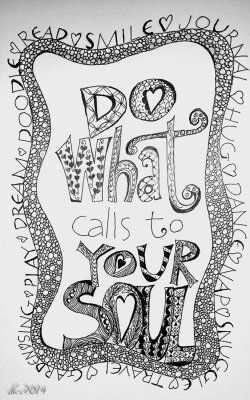 DO
What
calls to
YOUR
SOUL
READ♥SMILE♥JOURNAL♥HUG♥DANCE♥NAP
TRAVEL
PLAY♥DREAM♥DOODLE
2014